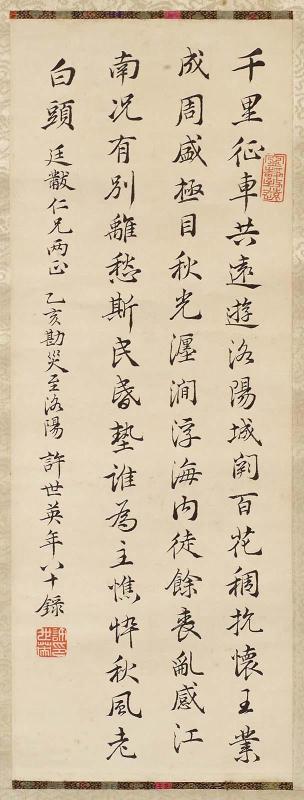 千里征車共遠遊洛陽城闕百花稠抗懷王業
成周盛極目秋光瀍澗浮海內徒餘喪亂感江
南況有別離愁斯民昏墊誰為主憔悴秋風老
白頭
廷黻仁兄兩正 乙亥勘災至洛陽 許世英年八十錄